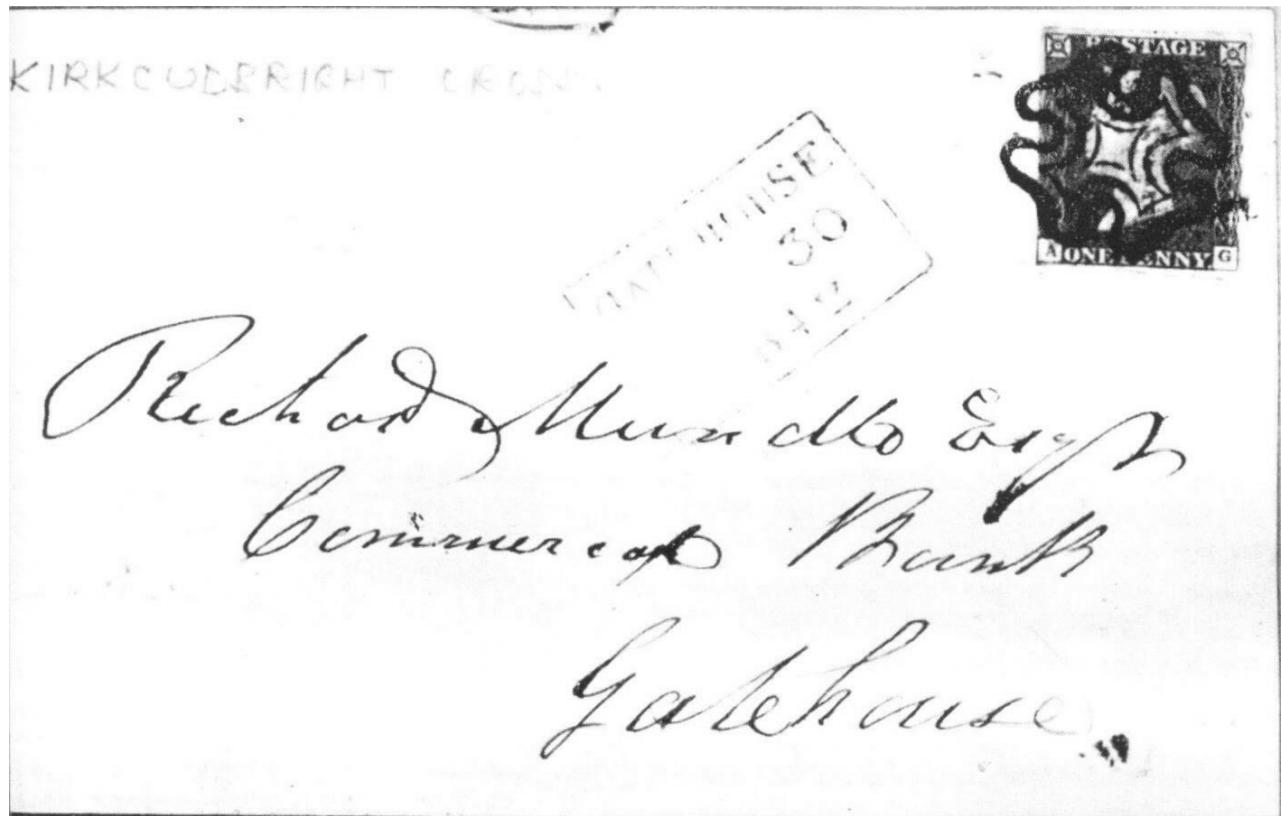 KIRKCUDBRIGHT CROSS
POSTAGE
A ONE PENNY G
GATEHOUSE
30
Richard Esqr
Commercial Bank
Gatehouse